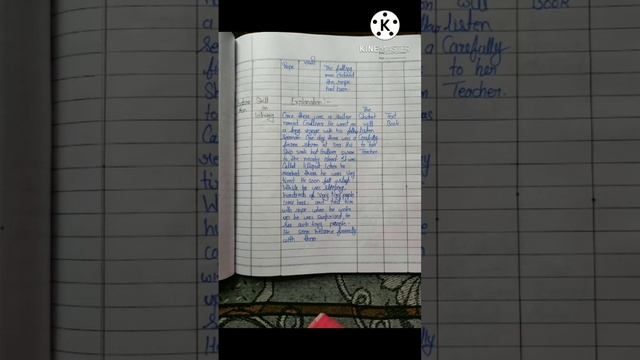 KINEMASTER
Rope
The falling
man climbed
the rope
Skill
in
listening
Explanation:-
Once there was a sailor
named Gulliver. He went on
a long voyage with his fellow
seaman. One day there was a
fierce storm at sea. His
Ship sank but Gulliver swam
to the nearby island. It was
called lilliput. When he
reached there he was very
tired. He soon fell asleep
While he was sleeping
hundreds of very tiny people
came here and tied him
with rope when he woke
up he was surprised to
see such tiny people
He soon became friendly
with them
The
Student
will
listen
Carefully
to her
Teacher
Text
Book
will
listen
Carefully
to her
Teacher.
Book